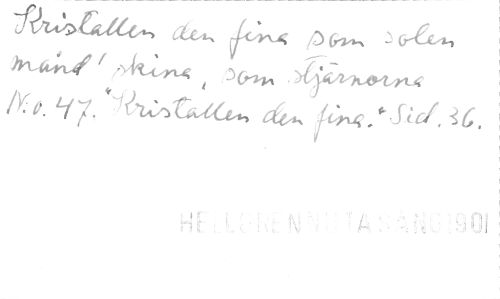 Kristallen den fina som solen
månd' skina, som stjärnorna
No. 47. "Kristallen den fina." Sid. 36.
1901